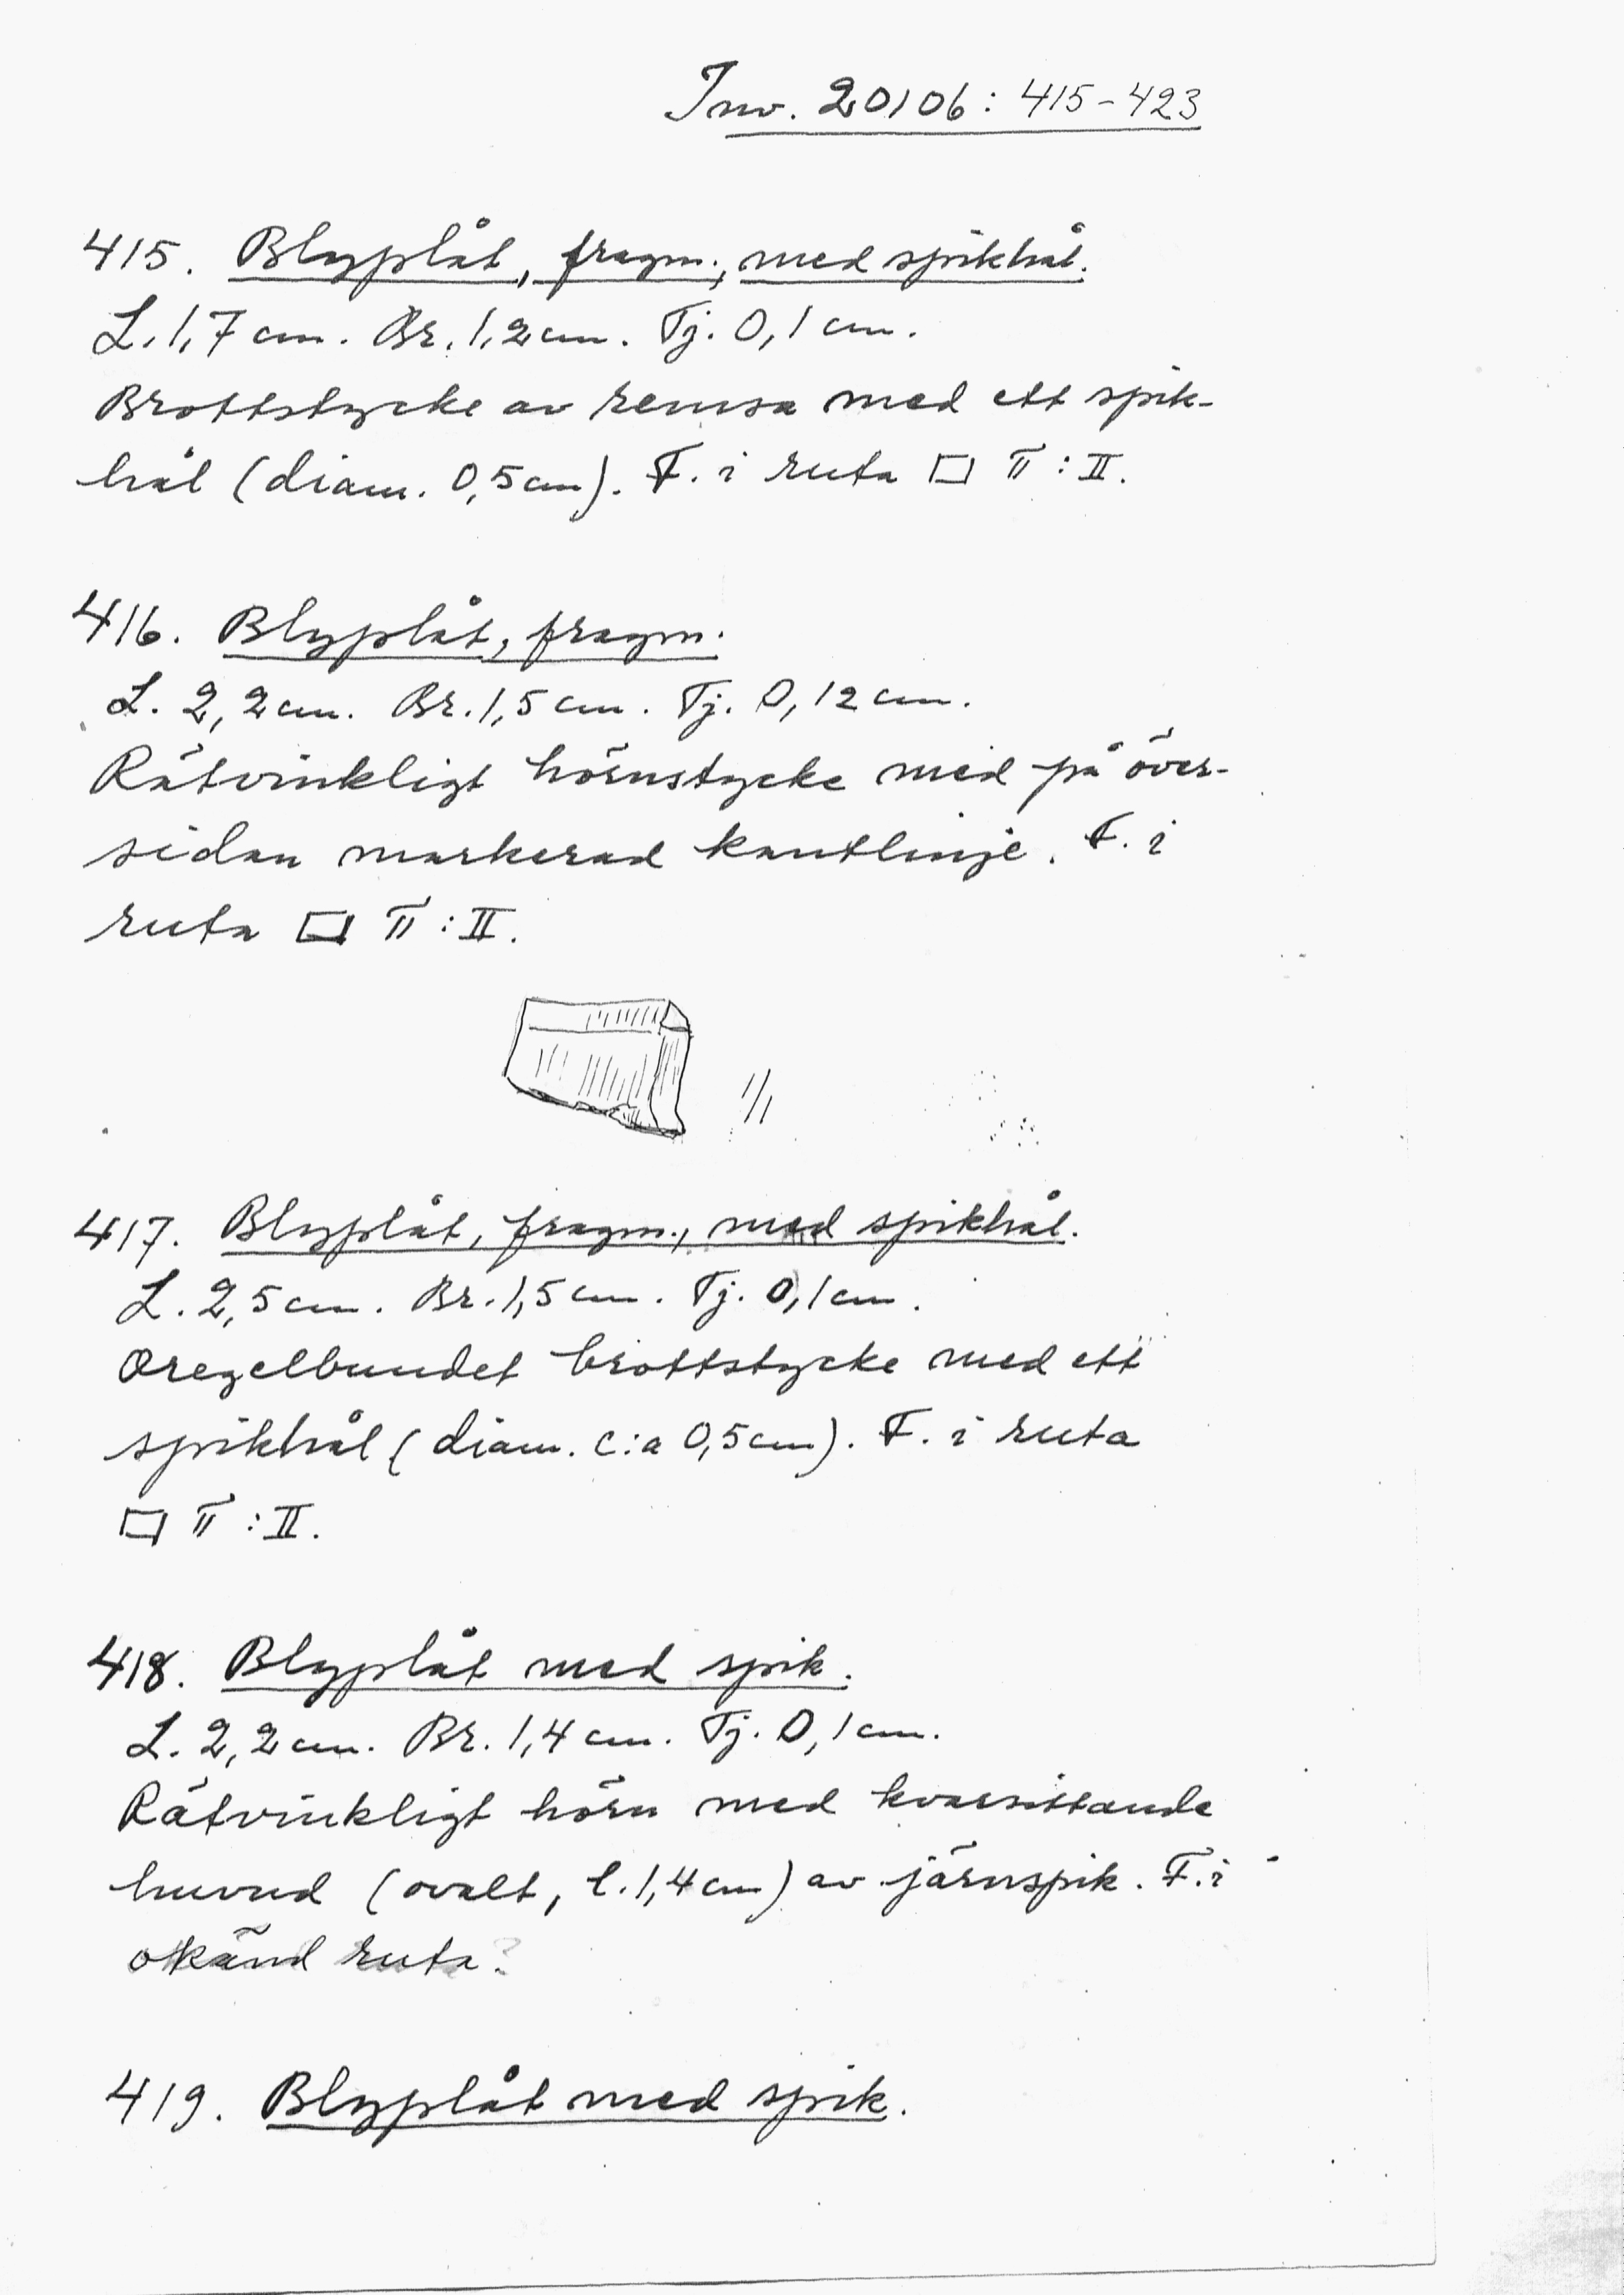 Inv. 20106: 415-423
415. Blyplåt, fragm., med spikhål.
L. 1,7 cm. Br. 1,2 cm. Tj. 0,1 cm.
Brottstycke av remsa med ett spik-
hål (diam. 0,5 cm). F. i ruta □ π : II.
416. Blyplåt, fragm.
L. 2,2 cm. Br. 1,5 cm. Tj. 0,12 cm.
Rätvinkligt hörnstycke med på över-
sidan markerad kantlinje. F. i
ruta □ π : II.
417. Blyplåt, fragm., med spikhål.
L. 2,5 cm. Br. 1,5 cm. Tj. 0,1 cm.
Oregelbundet brottstycke med ett
spikhål (diam. c:a 0,5 cm). F. i ruta
□ π : II.
418. Blyplåt med spik.
L. 2,2 cm. Br. 1,4 cm. Tj. 0,1 cm.
Rätvinkligt hörn med kvarsittande
huvud (ovalt, l. 1,4 cm) av järnspik. F. i
okänd ruta?
419. Blyplåt med spik.